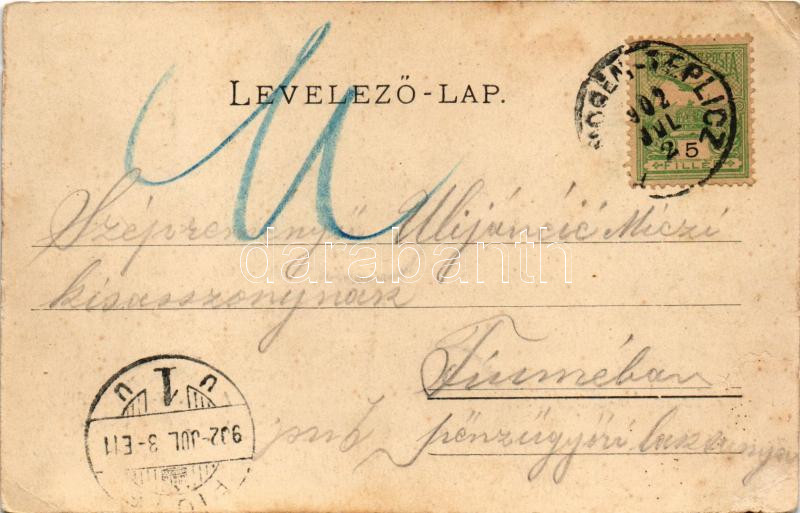 LEVELEZŐ-LAP.
902
JUL
2
5
FILLÉR
U
Szépreményű Ulijáncić Miczi
kisasszonynak
darabanth
Fiumében
pénzügyőri laktanya
U 1 U
902-JUL 3-E11